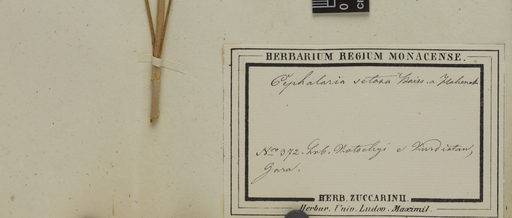 0
cm
HERBARIUM REGIUM MONACENSE.
Cephalaria setosa Boiss. a Hohenak
Nro 372. hrb. Kotschyi e Kurdistan,
Gara.
HERB. ZUCCARINII.
Herbar. Univ. Ludov. Maximil.